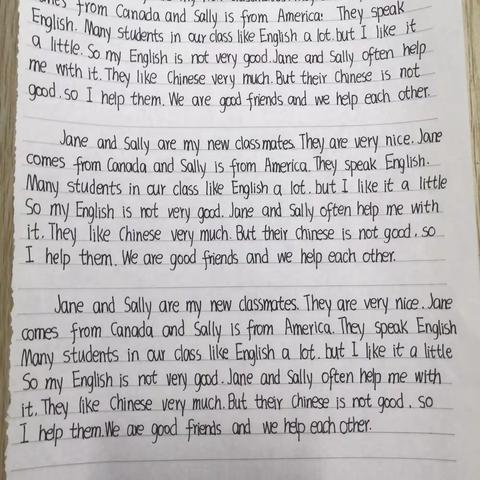 from Canada and Sally is from America. They speak
English. Many students in our class like English a lot. but I like it
a little. So my English is not very good. Jane and Sally often help
me with it. They like Chinese very much. But their Chinese is not
good. so I help them. We are good friends and we help each other.
Jane and Sally are my new classmates. They are very nice. Jane
comes from Canada and Sally is from America. They speak English.
Many students in our class like English a lot. but I like it a little
So my English is not very good. Jane and Sally often help me with
it. They like Chinese very much. But their chinese is not good. so
I help them. We are good friends and we help each other.
Jane and Sally are my new classmates. They are very nice. Jane
comes from Canada and Sally is from America. They speak English
Many students in our class like English a lot. but I like it a little
So my English is not very good. Jane and Sally often help me with
it. They like Chinese very much. But their Chinese is not good. so
I help them. We are good friends and we help each other.